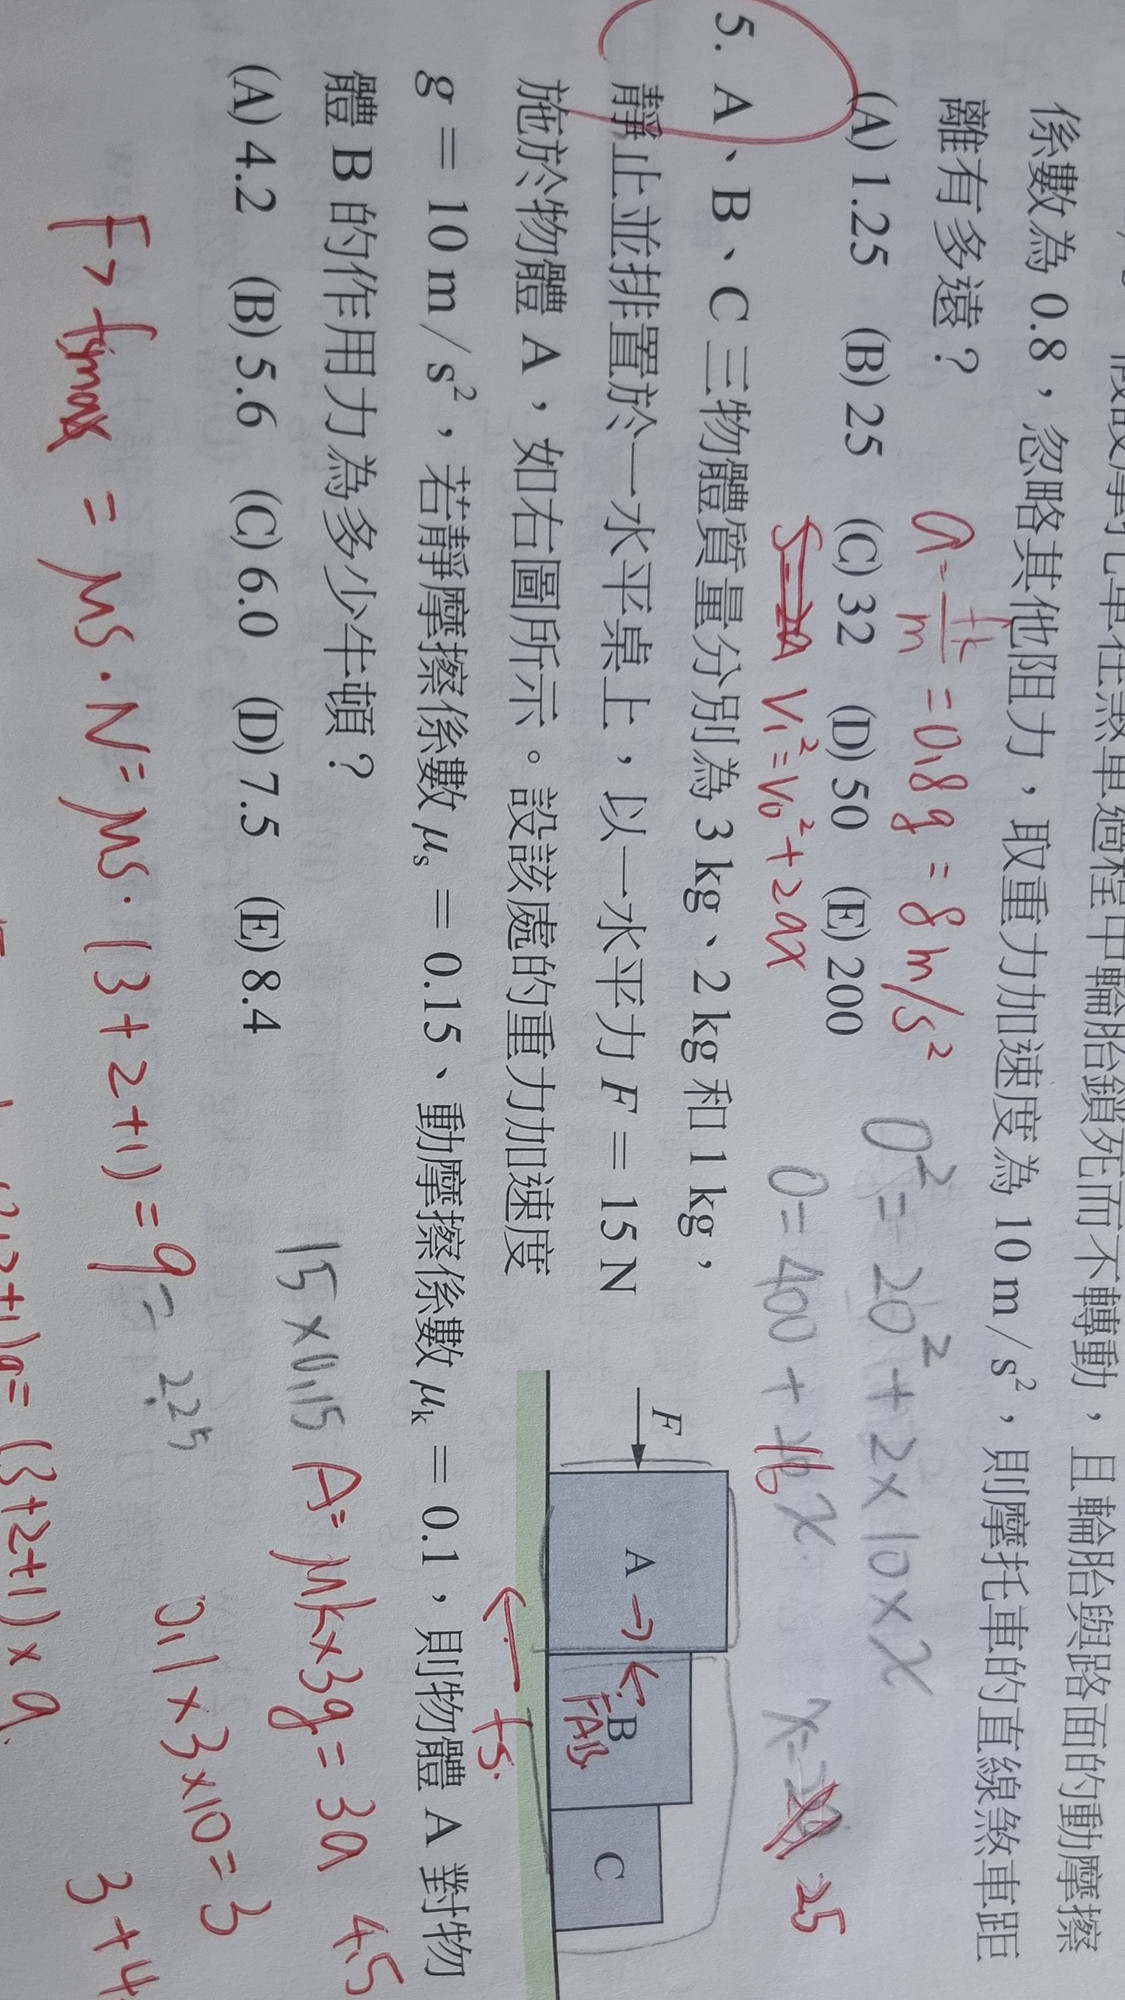 係數為 0.8，忽略其他阻力，取重力加速度為 10 m / s²，則摩托車的直線煞車距
離有多遠？
(A) 1.25 (B) 25 (C) 32 (D) 50 (E) 200
= 0.8g = 8m/s²
0² = 20² + 2×10×x
V₁² = V₀² + 2ax
0 = 400 + 16x
25
5. A、B、C 三物體質量分別為 3 kg、2 kg 和 1 kg，
靜止並排置於一水平桌上，以一水平力 F = 15 N
施於物體 A，如右圖所示。設該處的重力加速度
g = 10 m / s²，若靜摩擦係數 μs = 0.15、動摩擦係數 μk = 0.1，則物體 A 對物
體 B 的作用力為多少牛頓？
(A) 4.2 (B) 5.6 (C) 6.0 (D) 7.5 (E) 8.4
F
A
B
C
FAB
fs.
15×0.15
A= μk×3g = 3a
4.5
F > fsmax = μs·N = μs·(3+2+1) = 9
= 2.25
0.1×3×10=3
3+4
(3+2+1)×a